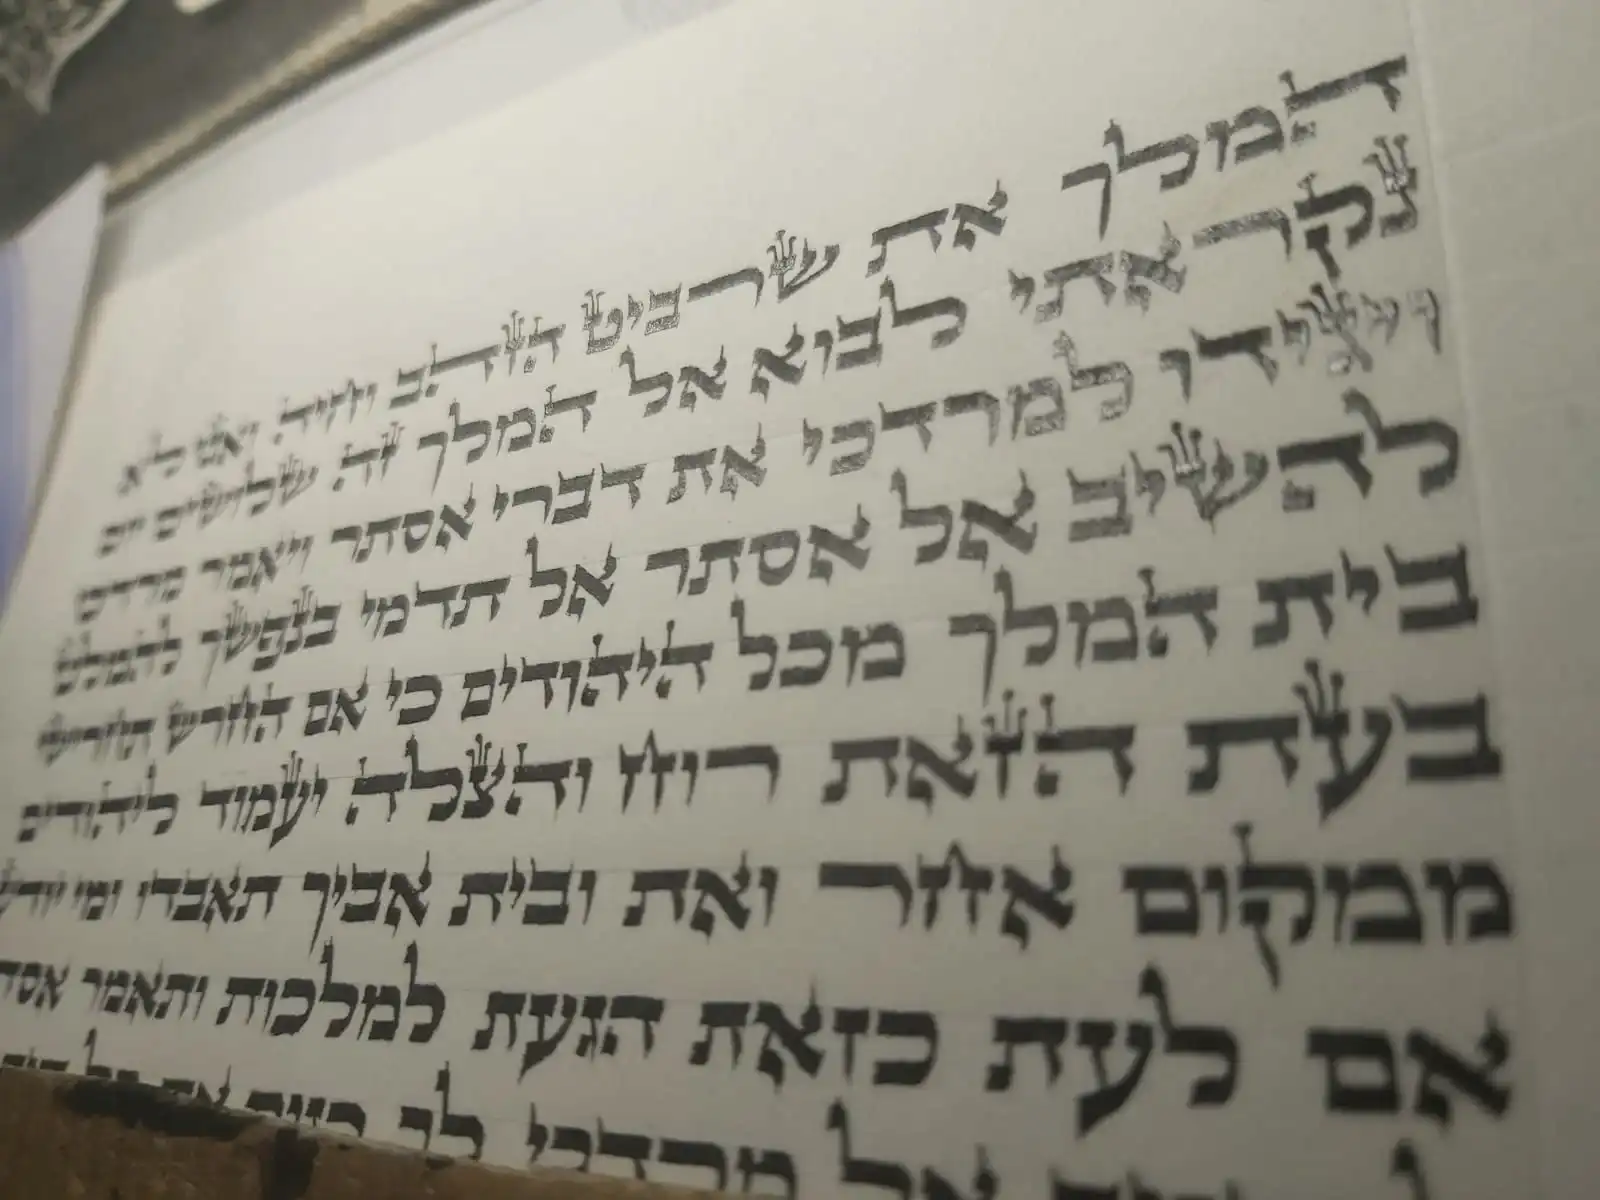 המלך את שרביט הזהב וחיה ואני לא
נקראתי לבוא אל המלך זה שלושים יום
ויגידו למרדכי את דברי אסתר ויאמר מרדכי
להשיב אל אסתר אל תדמי בנפשך להמלט
בית המלך מכל היהודים כי אם החרש תחרישי
בעת הזאת רוח והצלה יעמוד ליהודים
ממקום אחר ואת ובית אביך תאבדו ומי יודע
אם לעת כזאת הגעת למלכות ותאמר אסתר
אל מרדכי לך כנוס את כל